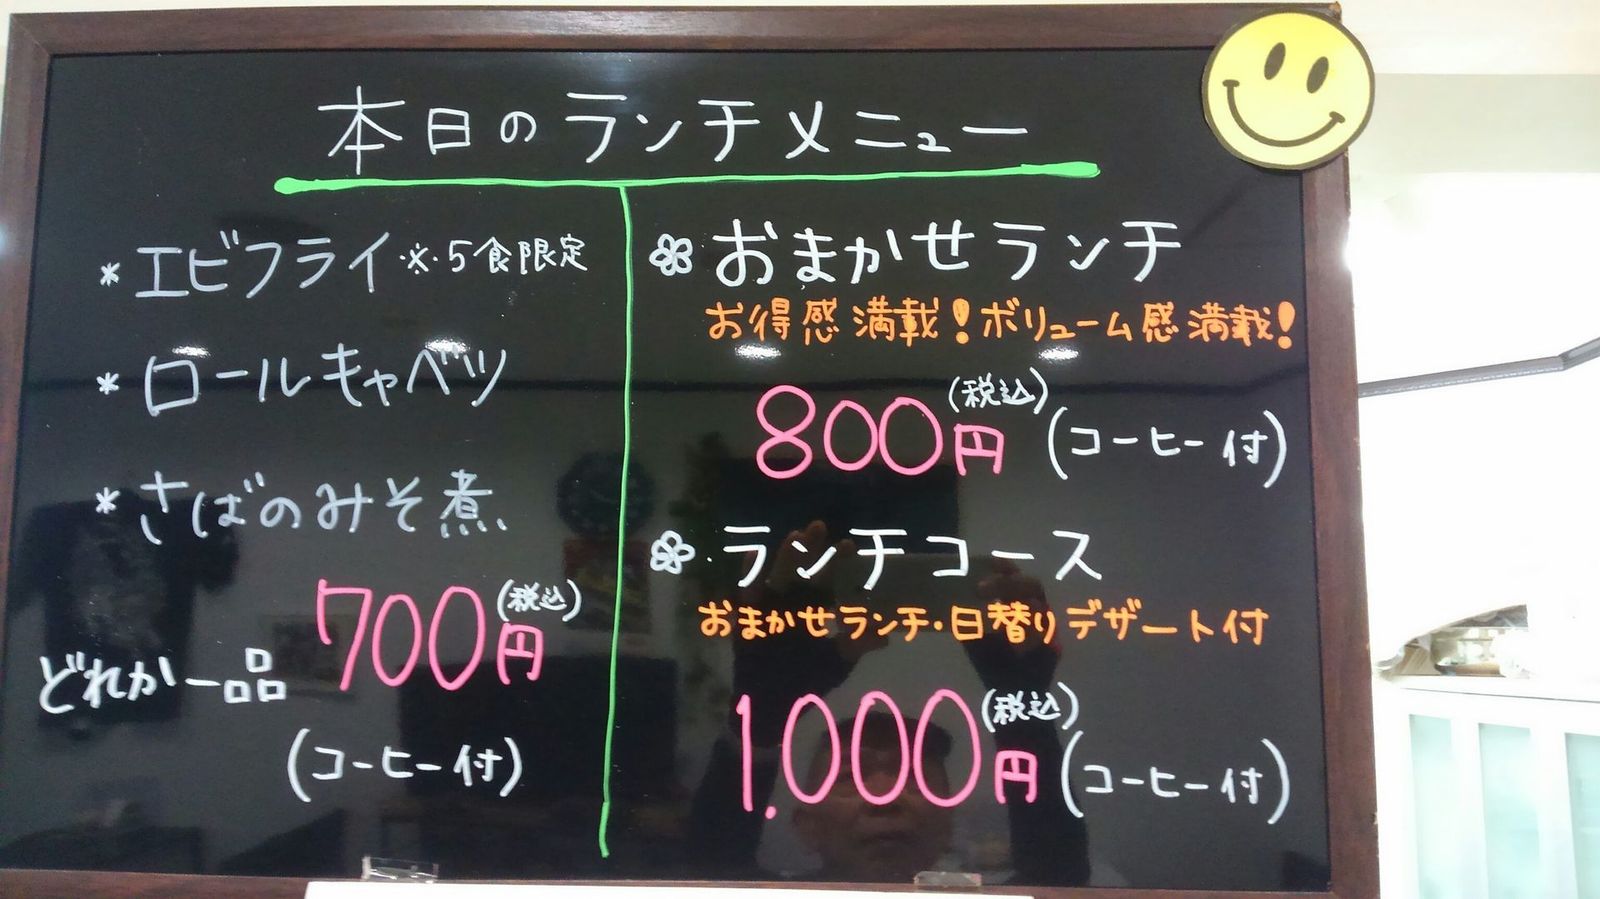 本日のランチメニュー
* エビフライ ※.5食限定
* ロールキャベツ
* さばのみそ煮
どれか一品 700円(税込)
(コーヒー付)
おまかせランチ
お得感満載!ボリューム感満載!
800円(税込)(コーヒー付)
ランチコース
おまかせランチ・日替りデザート付
1.000円(税込)(コーヒー付)